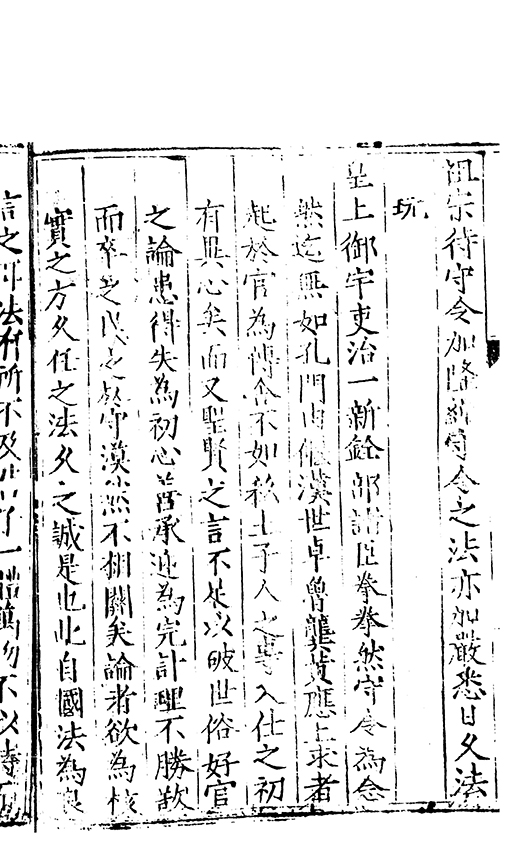 祖宗待守令加隆經守令之法亦加嚴悉日久法
玩
皇上御宇吏治一新銓部諸臣拳拳然守令為念
然迄無如孔門由偃漢世卓魯龔黃應上求者
起於官為傳舍不如秋士子人之專入仕之初
有異心矣而又聖賢之言不足以破世俗好官
之論患得失為初心善承迎為完計壅不勝欲
而卒之民之於守漠然不相關矣論者欲為核
實之方久任之法久之誠是也此自國法為
言之耳法有所不及